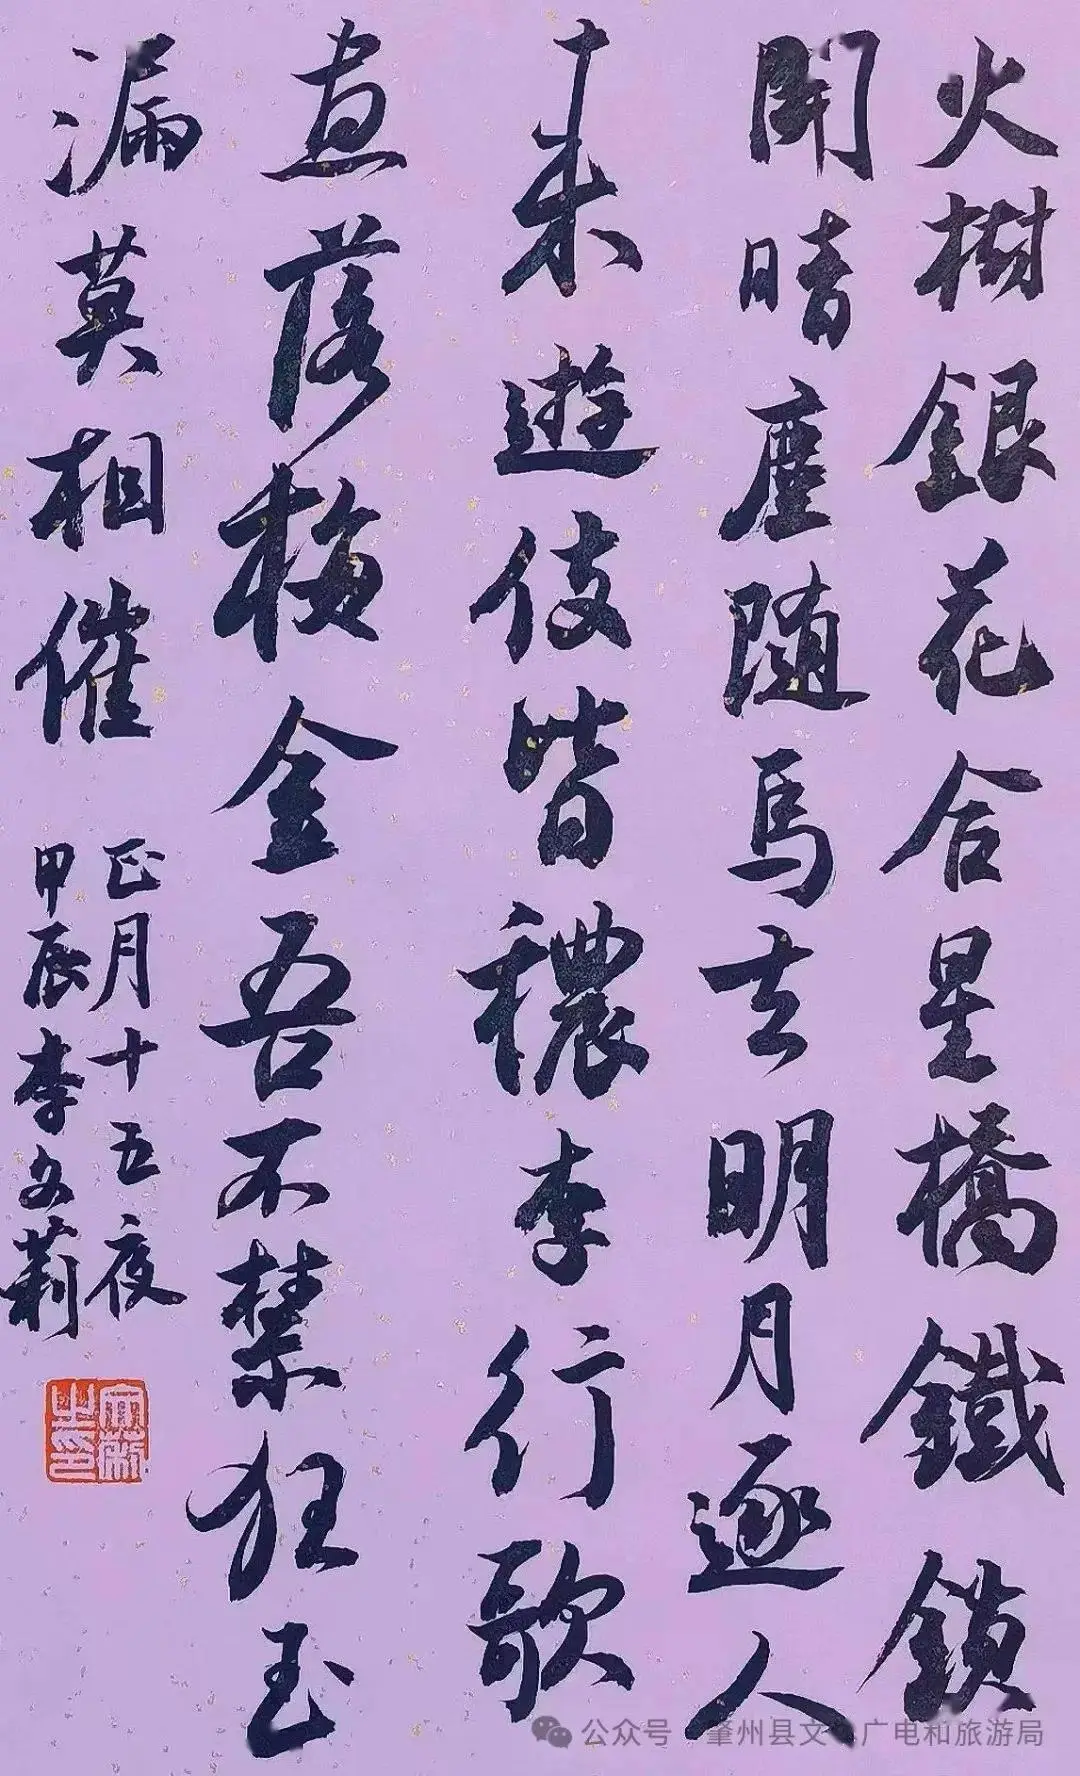 火樹銀花合星橋鐵鎖
開暗塵隨馬去明月逐人
來遊伎皆穠李行歌
盡落梅金吾不禁狂玉
漏莫相催
正月十五夜
甲辰李文莉
公众号 · 肇州县文 广电和旅游局